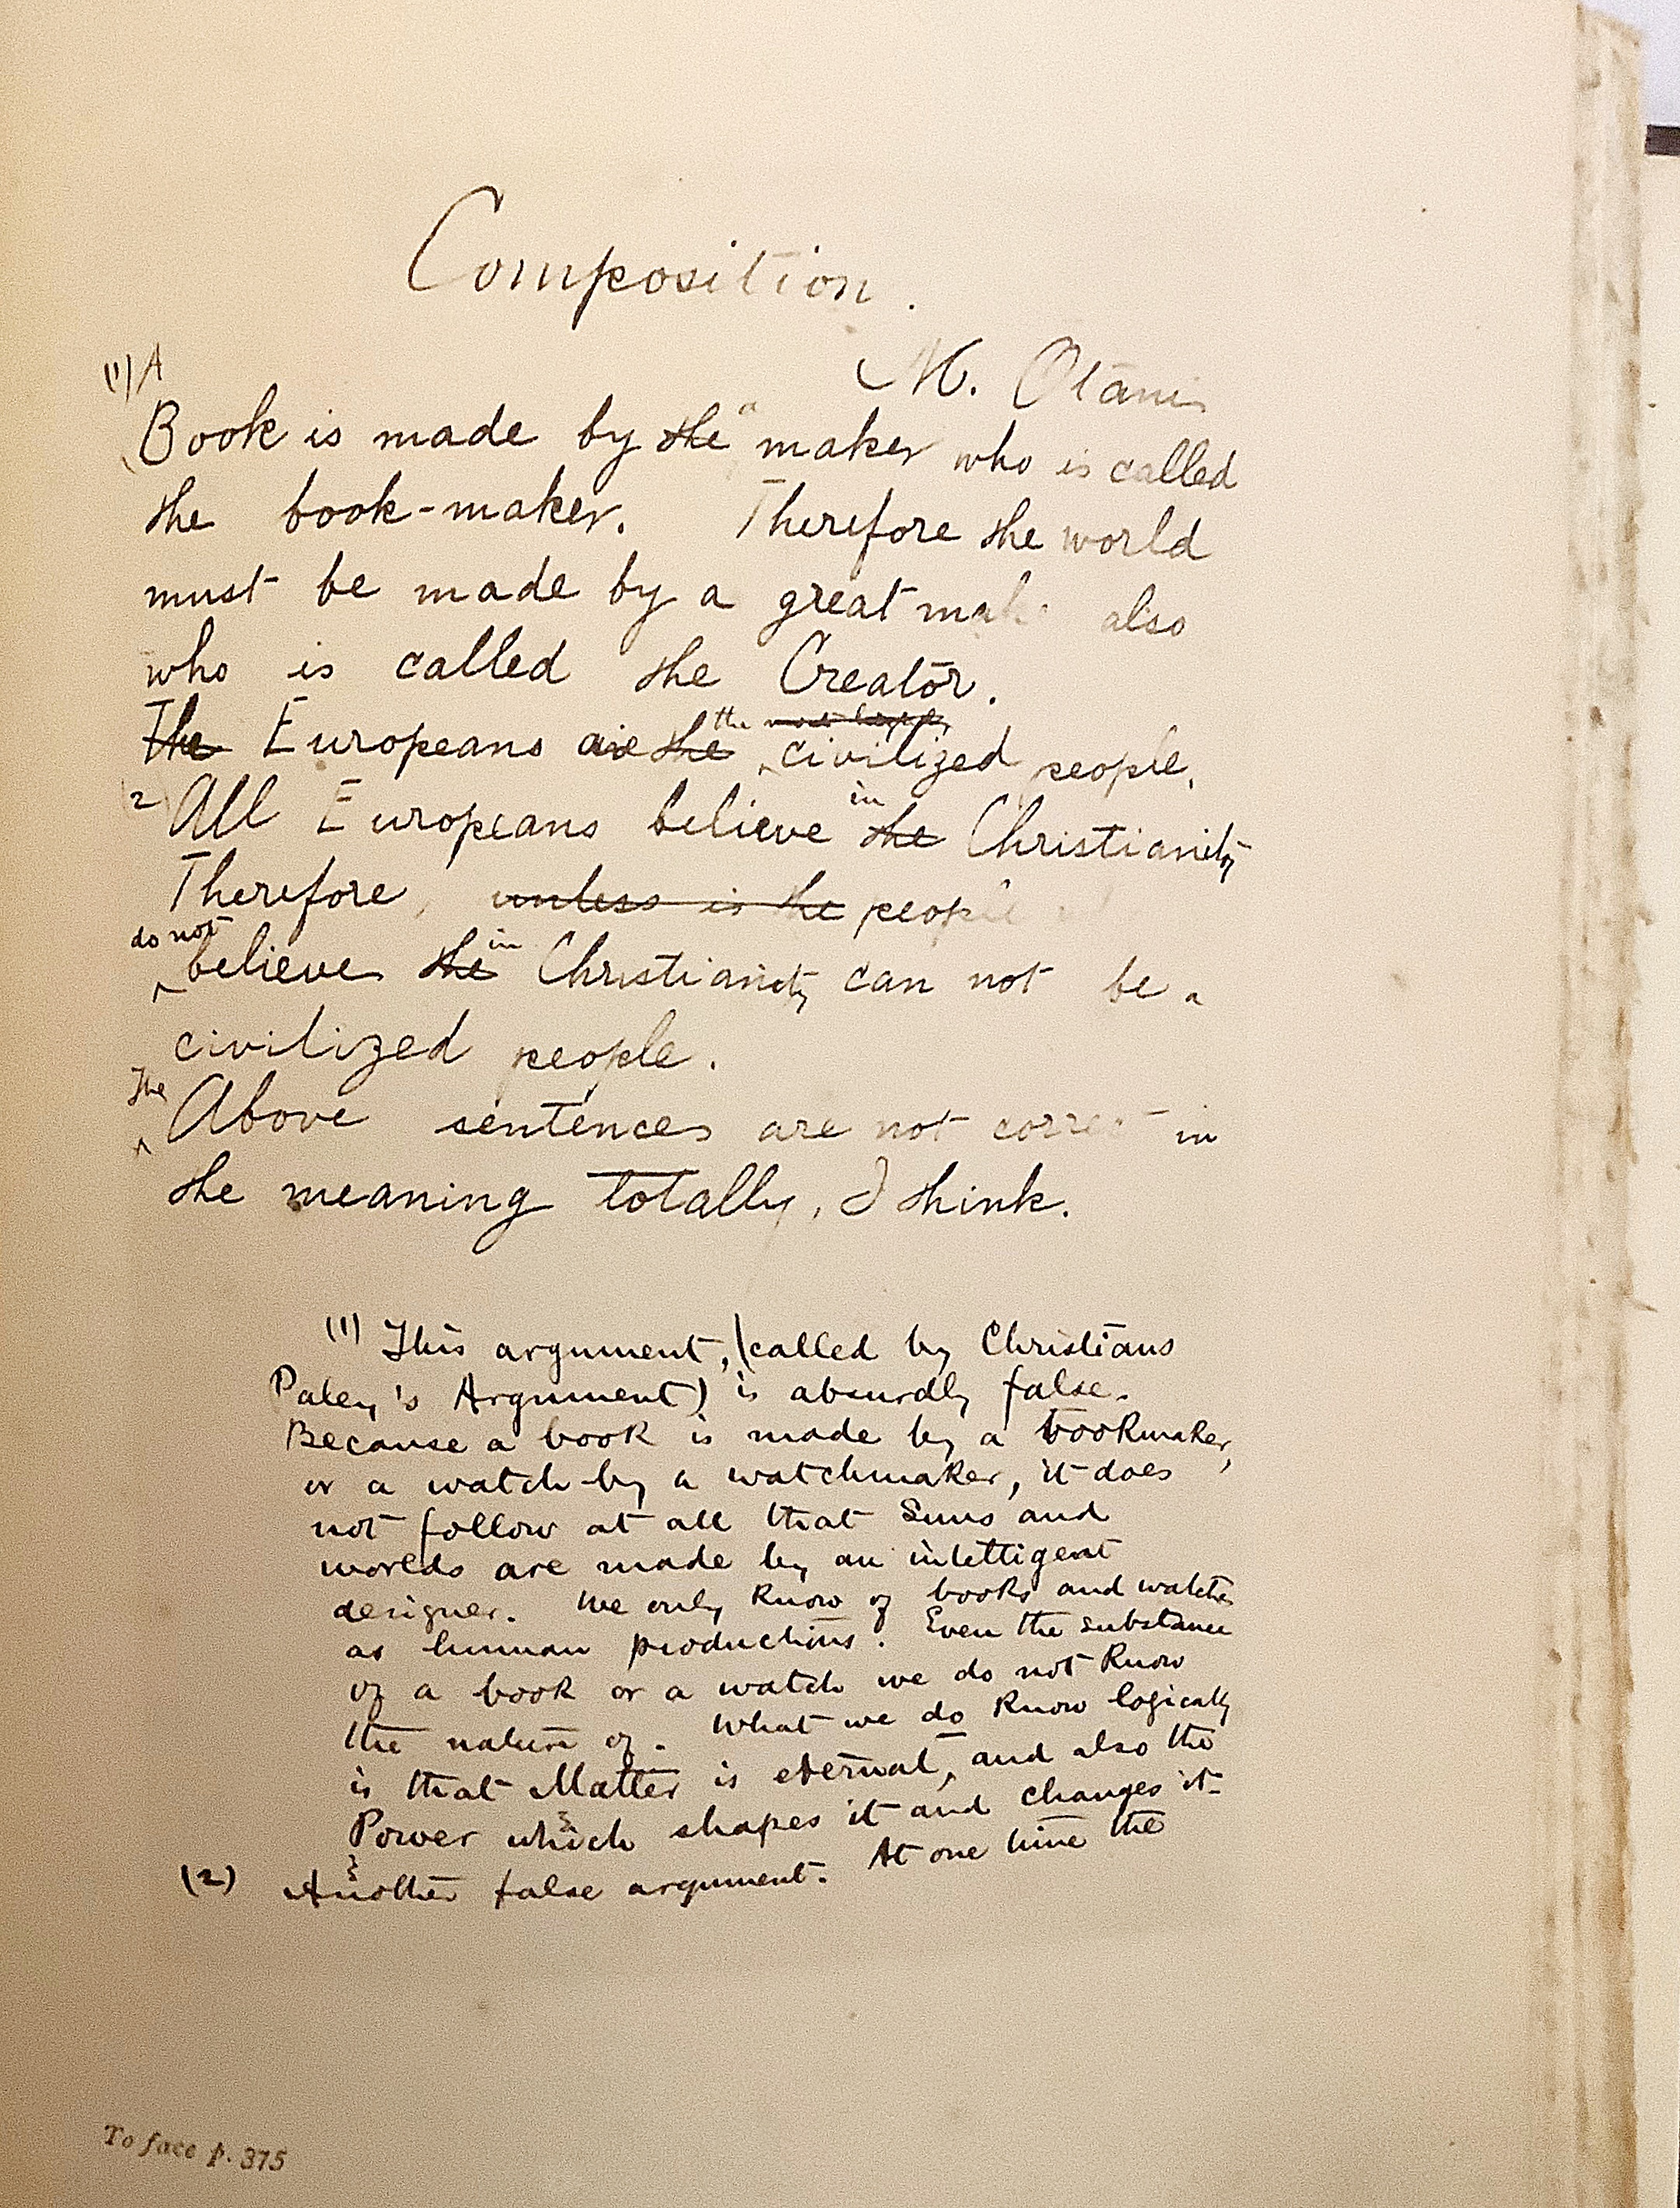 Composition.
M. Otani
(1) A
Book is made by the a maker who is called
the book-maker. Therefore the world
must be made by a great also
who is called the Creator.
the
The Europeans are the civilized people.
2 All Europeans believe the in Christianity
Therefore, unless is the people
do not
believe the in Christianity can not be a
civilized people.
The
Above sentences are not correct in
the meaning totally, I think.
(1) This argument, (called by Christians
Paley's Argument) is absurdly false.
Because a book is made by a bookmaker,
or a watch by a watchmaker, it does
not follow at all that Suns and
worlds are made by an intelligent
designer. We only know of books and watches
as human productions. Even the substance
of a book or a watch we do not know
the nature of. What we do know logically
is that Matter is eternal, and also the
Power which shapes it and changes it.
(2) Another false argument. At one time the
To face p. 375